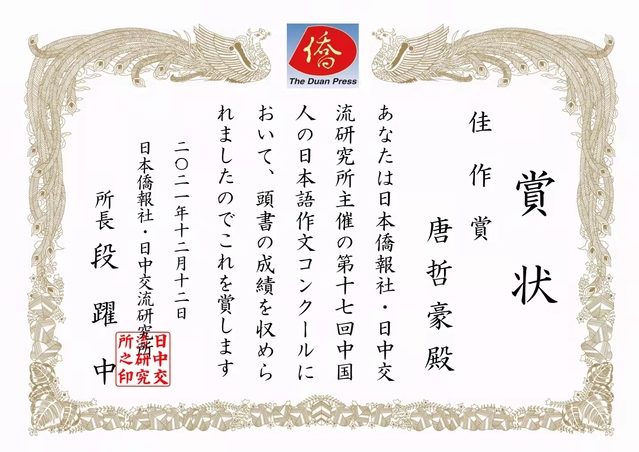 僑
The Duan Press
賞状
佳作賞
唐哲豪殿
あなたは日本僑報社・日中交
流研究所主催の第十七回中国
人の日本語作文コンクールに
おいて、頭書の成績を収めら
れましたのでこれを賞します
二〇二一年十二月十二日
日本僑報社・日中交流研究所
所長 段躍中
日中交
流研究
所之印